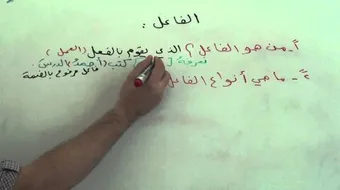 الفاعل :
أ- من هو الفاعل؟ الذي يقوم بالفعل (العمل)
كتب أحمدُ الدرسَ.
فاعل مرفوع بالضمة
٢- ما هي أنواع الفاعل